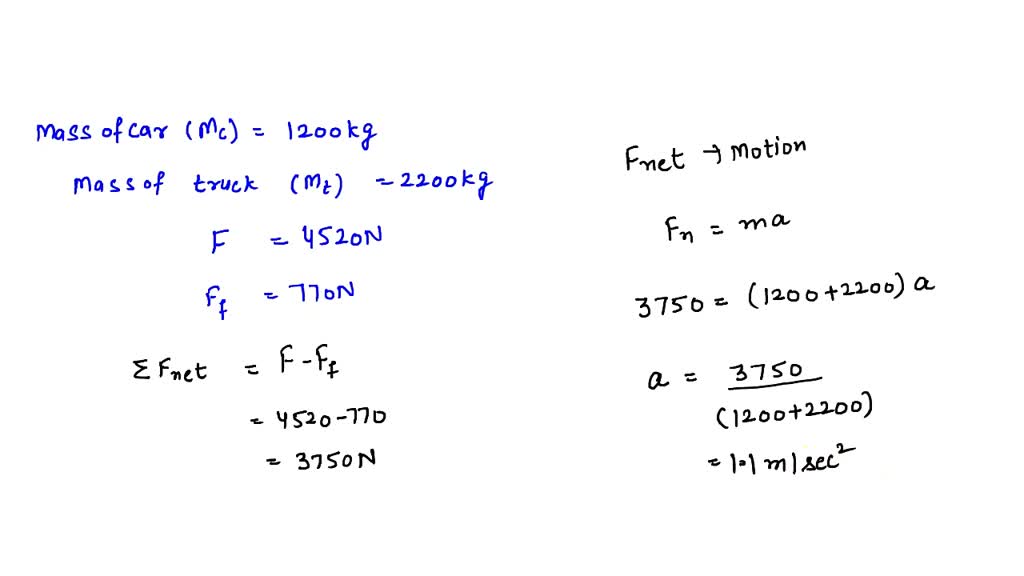 Mass of car (Mc) = 1200kg
Mass of truck (Mt) = 2200kg
F = 4520N
Ff = 770N
ΣFnet = F-Ff
= 4520-770
= 3750N
Fnet → Motion
Fn = ma
3750 = (1200+2200) a
a = 3750
(1200+2200)
= 1.1 m/sec²